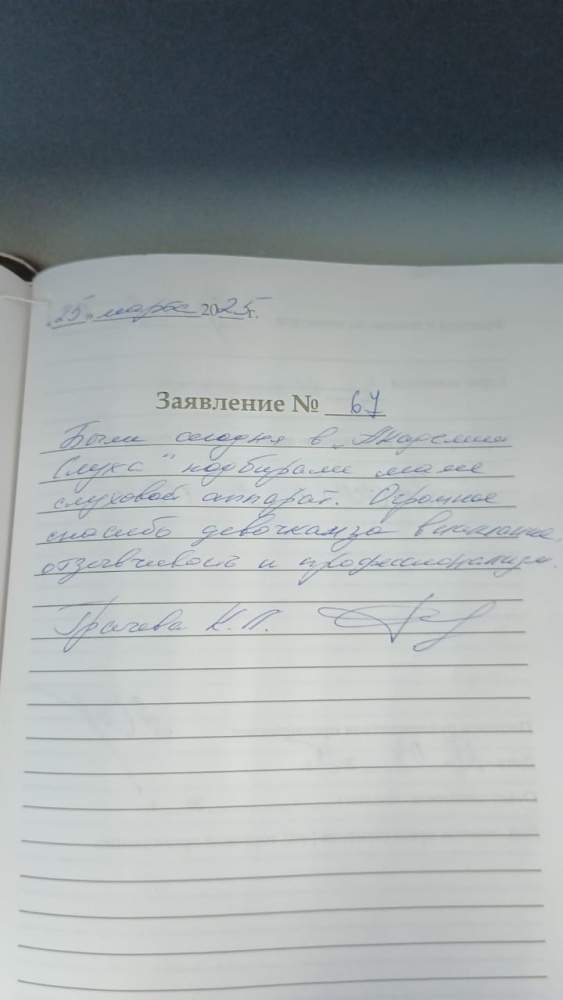 "25" марта 2025г.
Заявление № 67
Были сегодня в "Академии
Слуха" подбирали маме
слуховой аппарат. Огромное
спасибо девочкам за внимание,
отзывчивость и профессионализм.
Грачева К.П.